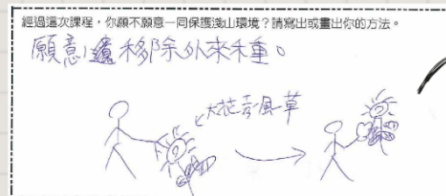 經過這次課程，你願不願意一同保護淺山環境？請寫出或畫出你的方法。
願意！移除外來種。
大花咸豐草